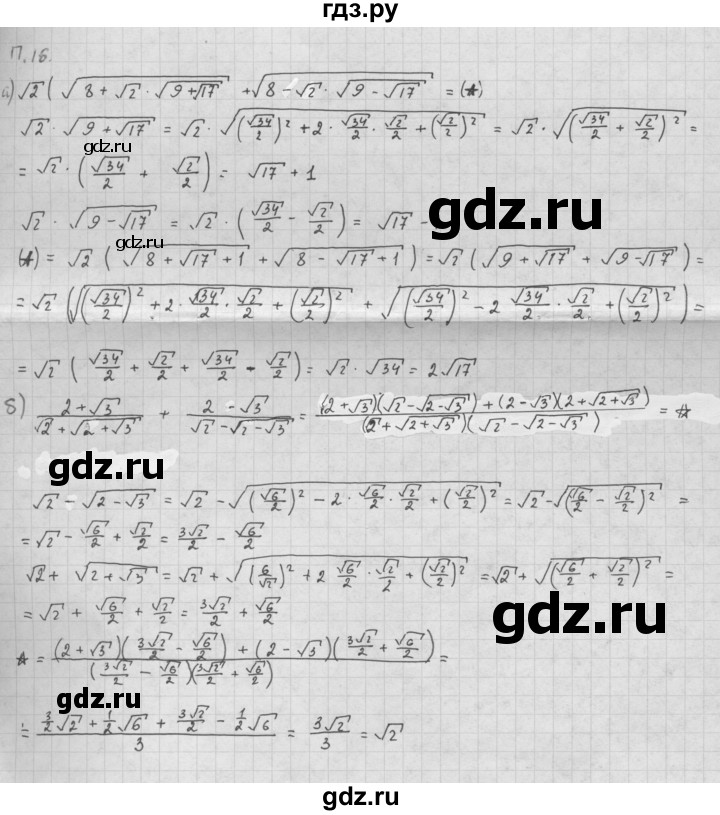 гдз.ру
П.16.
а) √2 (√(8 + √2 · √(9 + √17)) + √(8 - √2 · √(9 - √17))) = (*)
√2 · √(9 + √17) = √2 · √((√34/2)² + 2 · √34/2 · √2/2 + (√2/2)²) = √2 · √((√34/2 + √2/2)²) =
gdz.ru
= √2 · (√34/2 + √2/2) = √17 + 1
gdz.ru
√2 · √(9 - √17) = √2 · (√34/2 - √2/2) = √17 -
gdz.ru
(*) = √2 (√(8 + √17 + 1) + √(8 - √17 + 1)) = √2 (√(9 + √17) + √(9 - √17)) =
= √2 (√((√34/2)² + 2 · √34/2 · √2/2 + (√2/2)²) + √((√34/2)² - 2 √34/2 · √2/2 + (√2/2)²)) =
= √2 (√34/2 + √2/2 + √34/2 - √2/2) = √2 · √34 = 2√17
б) (2 + √3)/(√2 + √(2 + √3)) + (2 - √3)/(√2 - √(2 - √3)) = ((2 + √3)(√2 - √(2 - √3)) + (2 - √3)(2 + √(2 + √3)))/((2 + √(2 + √3))(√2 - √(2 - √3))) = *
gdz.ru
√2 - √(2 - √3) = √2 - √((√6/2)² - 2 · √6/2 · √2/2 + (√2/2)²) = √2 - √((√6/2 - √2/2)²) =
= √2 - √6/2 + √2/2 = 3√2/2 - √6/2
√2 + √(2 + √3) = √2 + √((6/√2)² + 2 √6/2 · √2/2 + (√2/2)²) = √2 + √((√6/2 + √2/2)²) =
= √2 + √6/2 + √2/2 = 3√2/2 + √6/2
gdz.ru
* = ((2 + √3)(3√2/2 - √6/2) + (2 - √3)(3√2/2 + √6/2))/((3√2/2 - √6/2)(3√2/2 + √6/2)) =
gdz.ru
= (3/2 √2 + 1/2 √6 + 3√2/2 - 1/2 √6)/3 = 3√2/3 = √2
gdz.ru